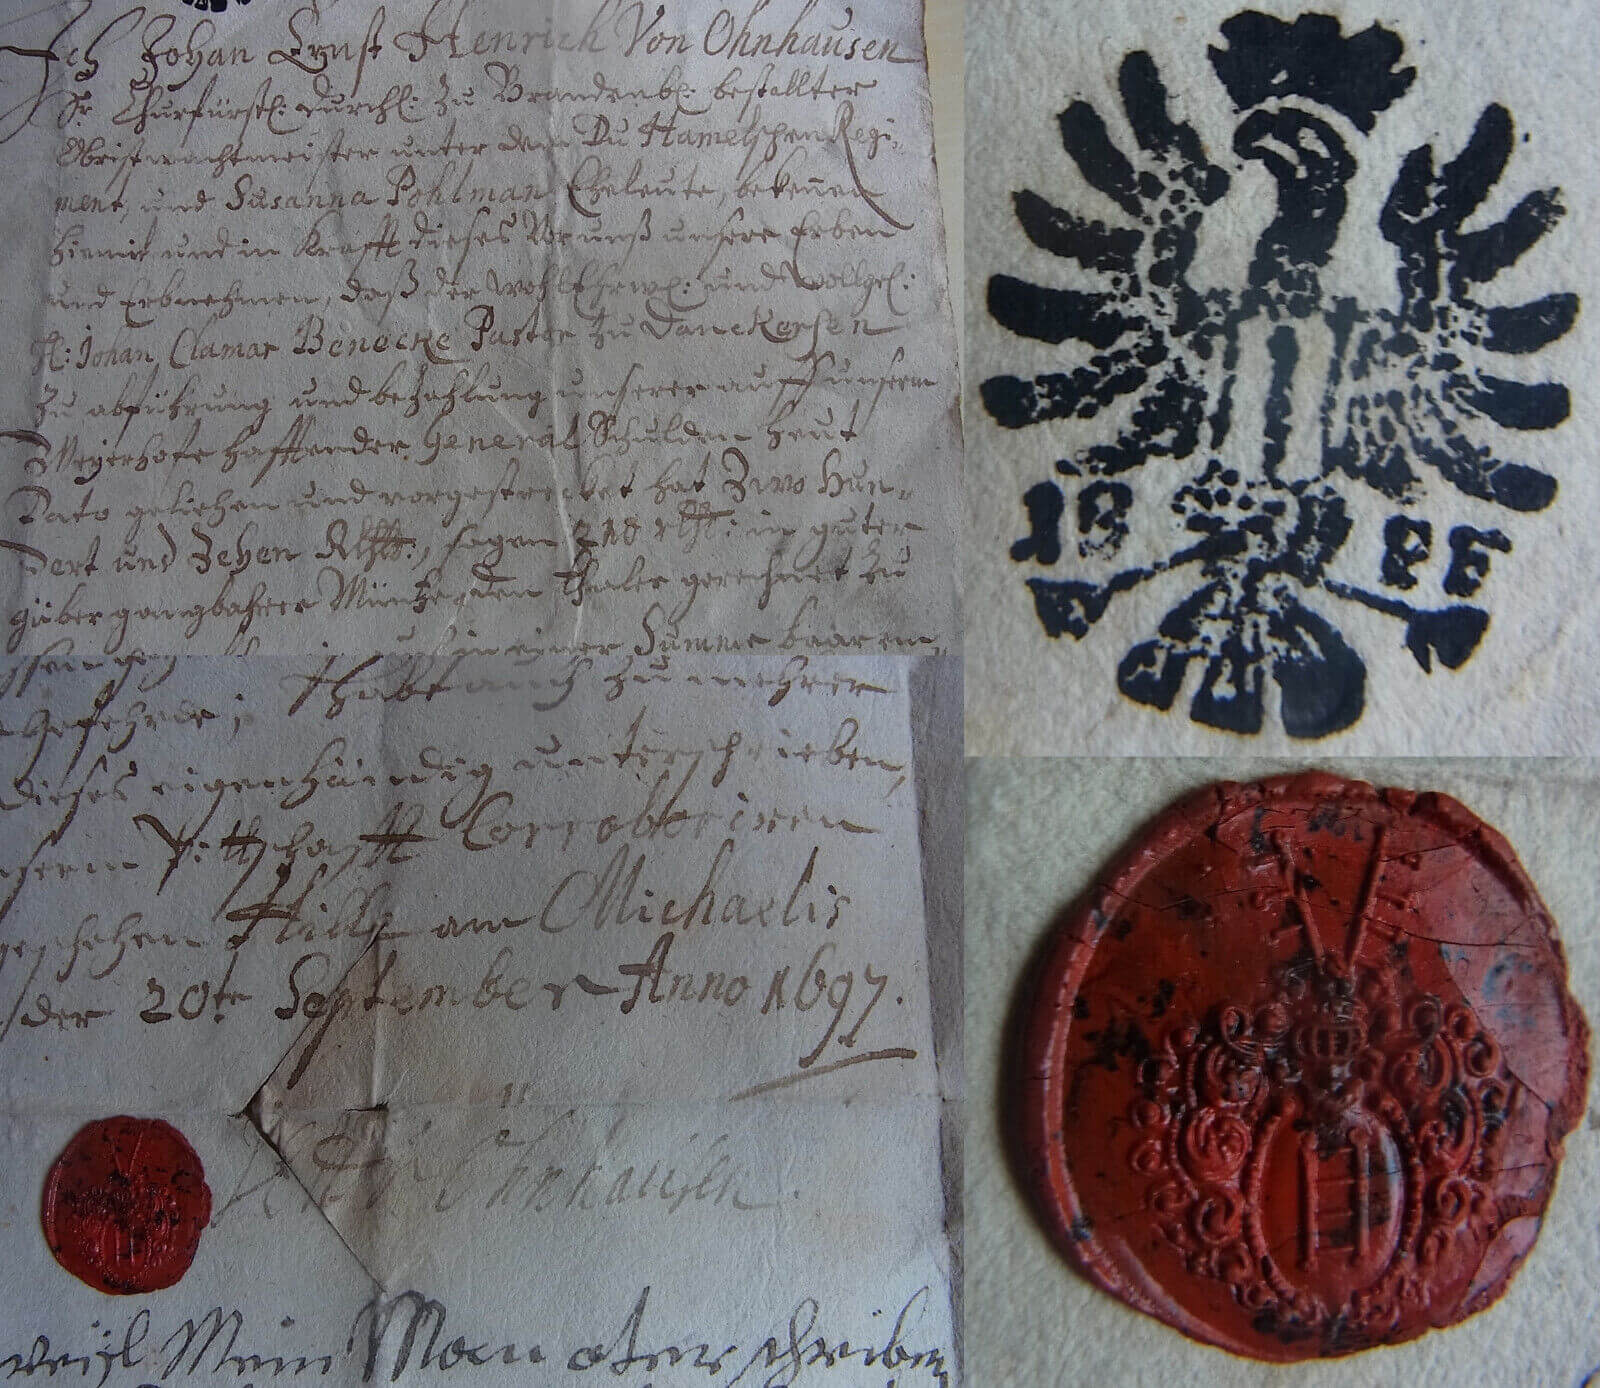 Ich Johan Ernst Henrich Von Ohnhausen
Sr Churfürstl: Durchl: zu Brandenb: bestellter
Obristwachtmeister unter dem Du Hamelschen Regi-
ment, und Susanna Pohlman Eheleute, bekennen
hiemit und in Krafft dieses Vor unß unsere Erben
und Erbnehmen, daß der WohlEhrw: und Wollgel:
H: Johan Clamar Benecke Pastor zu Danckersen
zu abführung und bezahlung unserer auff unserm
Meyerhofe hafftender General Schulden heut
Dato geliehen und vorgestrecket hat Zwo Hun-
dert und Zehen Rthlr., sagen 210 rthl: in guter
gangbahrer Müntze, den Thaler gerechnet zu
in einer Summe baar
Gefehrde; habe auch zu mehrer
dieses eigenhändig unterschrieben,
Pittschafft Corroboriren
geschehen Hille am Michaelis
der 20te September Anno 1697.
Ohnhausen
weihl Mein Man unterschrieben